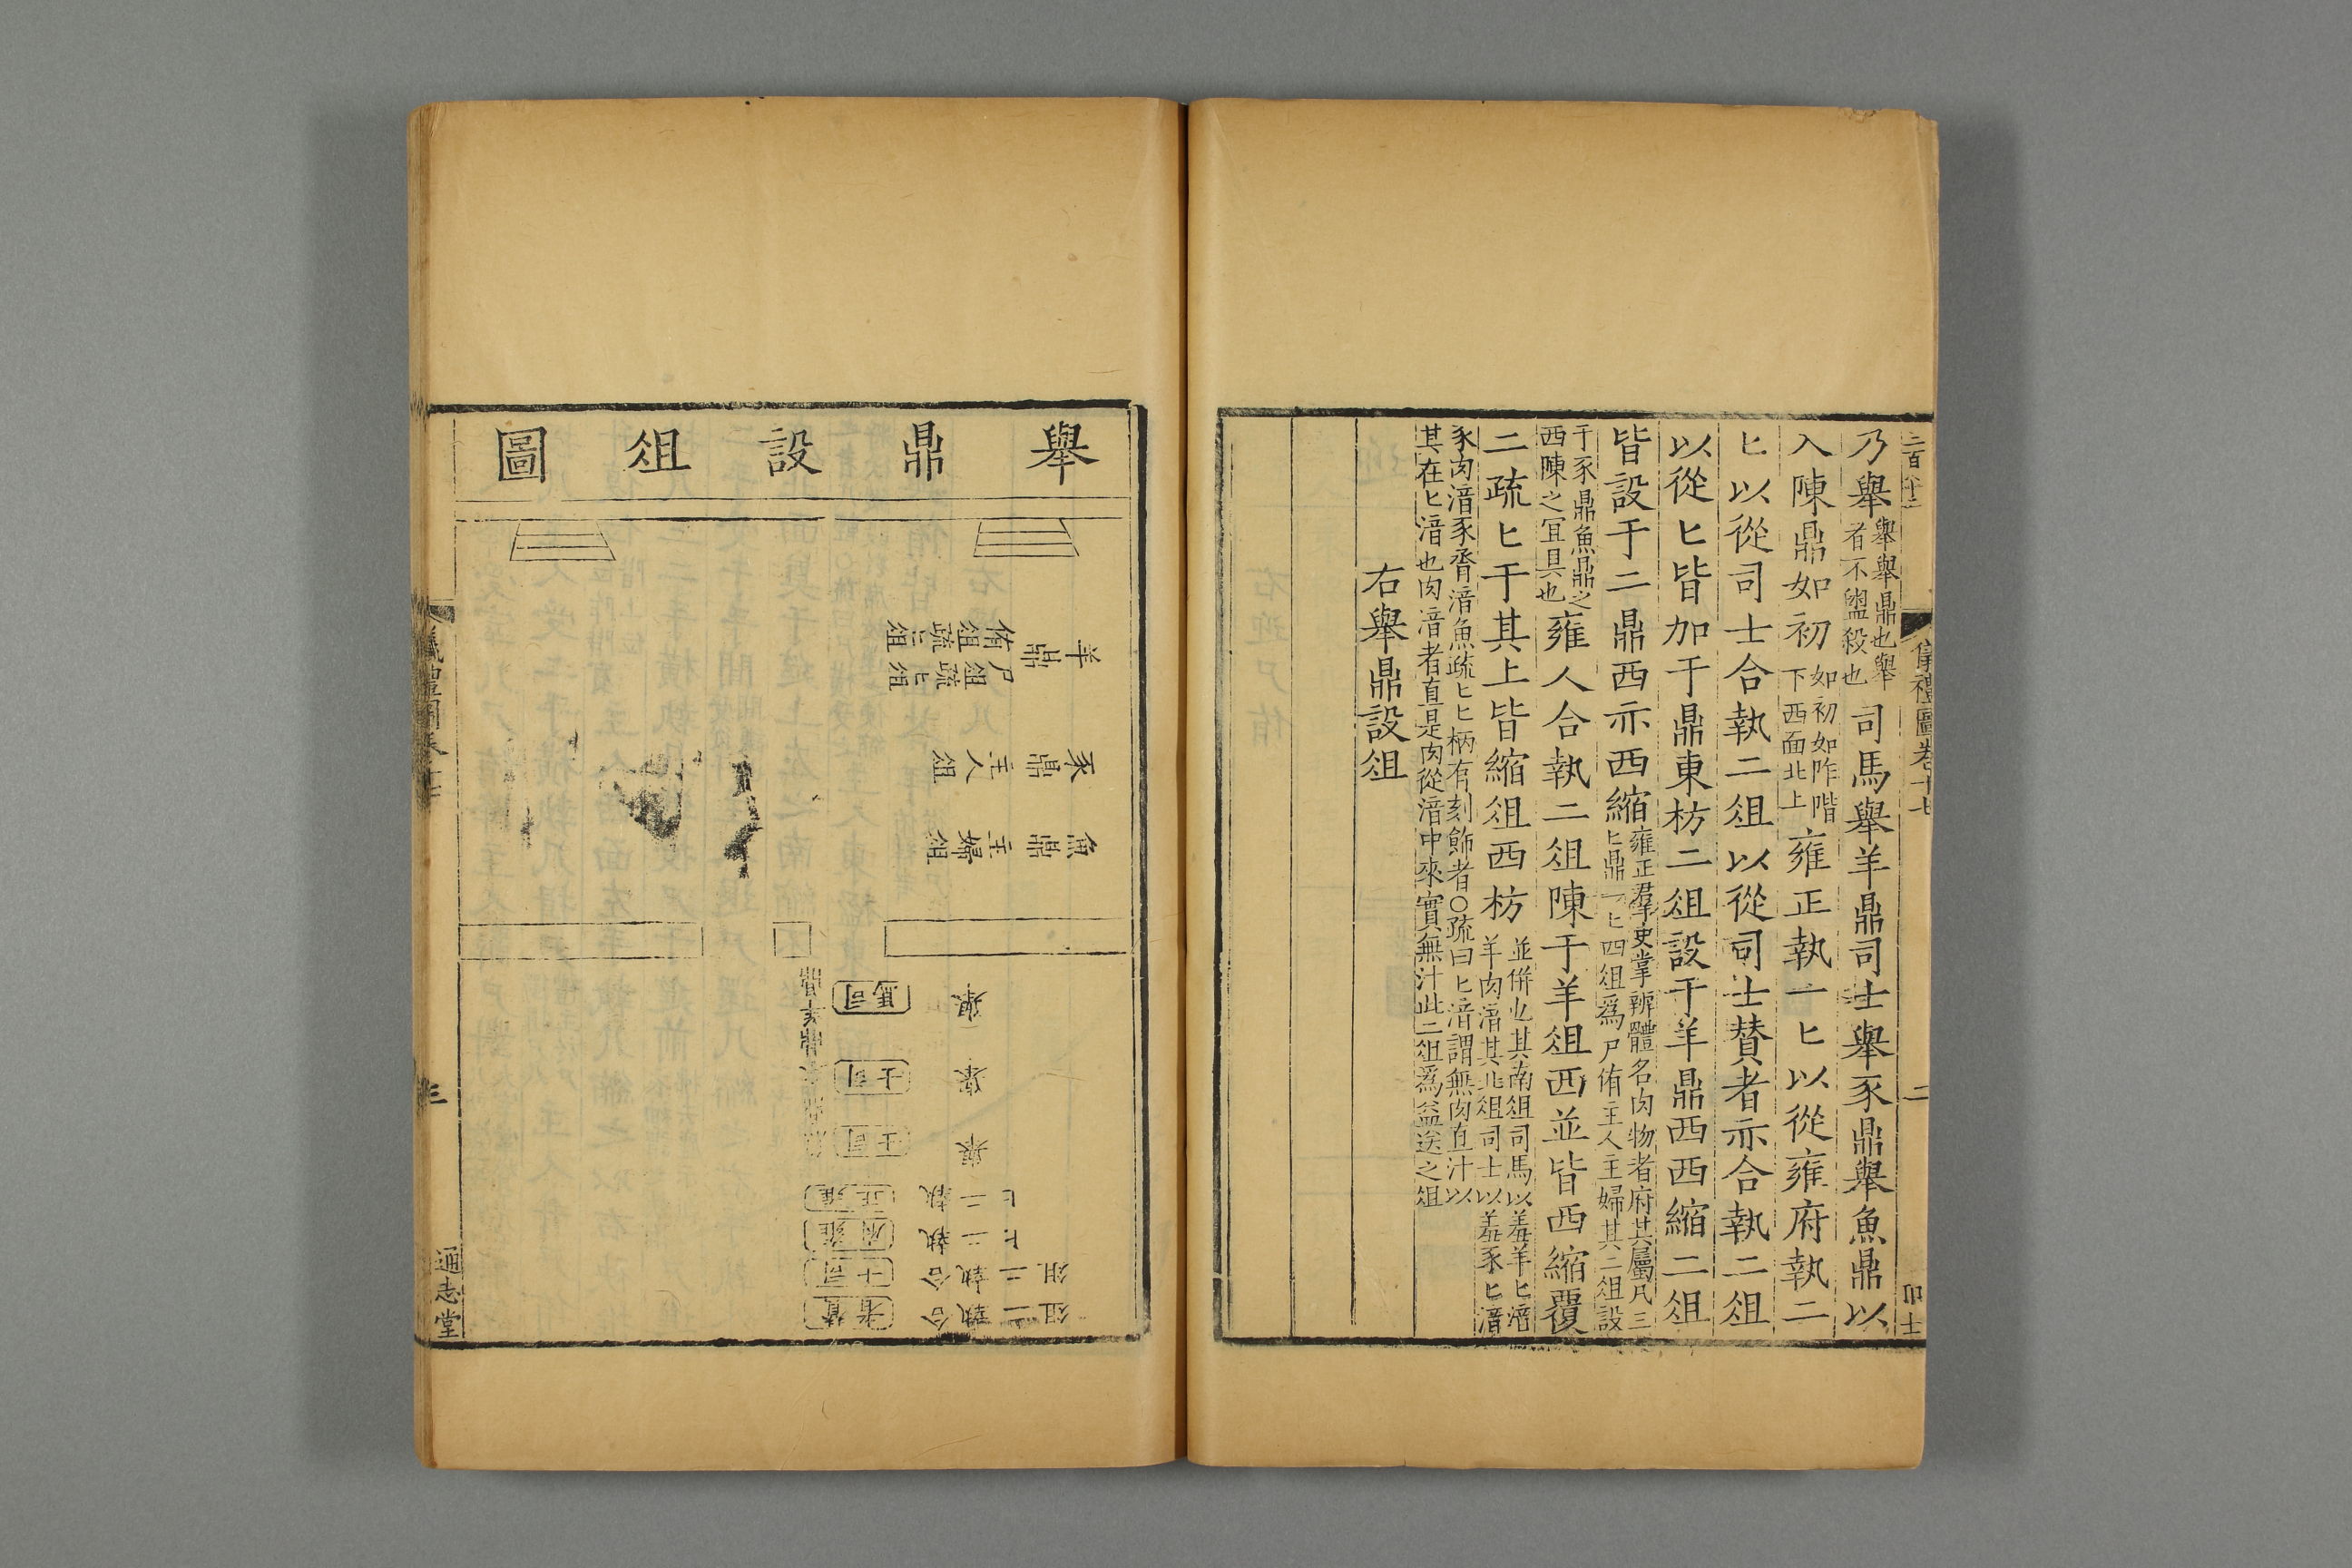 儀禮圖卷十七
二
乃舉舉舉鼎也舉者不盥殺也司馬舉羊鼎司士舉豕鼎舉魚鼎以
入陳鼎如初如初如阼階下西面北上雍正執一匕以從雍府執二
匕以從司士合執二俎以從司士贊者亦合執二俎
以從匕皆加于鼎東枋二俎設于羊鼎西西縮二俎
皆設于二鼎西亦西縮雍正羣吏掌辨體名肉物者府其屬凡三匕鼎一匕四俎爲尸侑主人主婦其二俎設
于豕鼎魚鼎之西陳之宜具也雍人合執二俎陳于羊俎西並皆西縮覆
二疏匕于其上皆縮俎西枋並併也其南俎司馬以羞羊匕湆羊肉湆其北俎司士以羞豕匕湆
豕肉湆豕脀湆魚疏匕匕柄有刻飾者○疏曰匕湆謂無肉直汁以
其在匕湆也肉湆者直是肉從湆中來實無汁此二俎爲益送之俎
右舉鼎設俎
舉鼎設俎圖
羊鼎
尸俎
侑俎
疏匕俎
疏匕俎
豕鼎
主人俎
魚鼎
主婦俎
司馬 舉
司士 舉
司士 舉
雍正 執一匕
雍府 執二匕
司士 合執二俎
贊者 合執二俎
三
通志堂